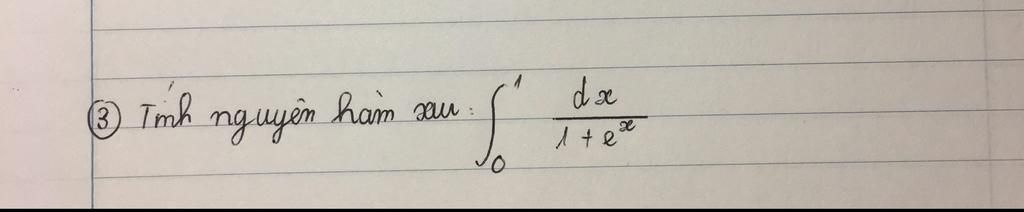 ③ Tính nguyên hàm xau: ∫₀¹ dx / (1 + eˣ)